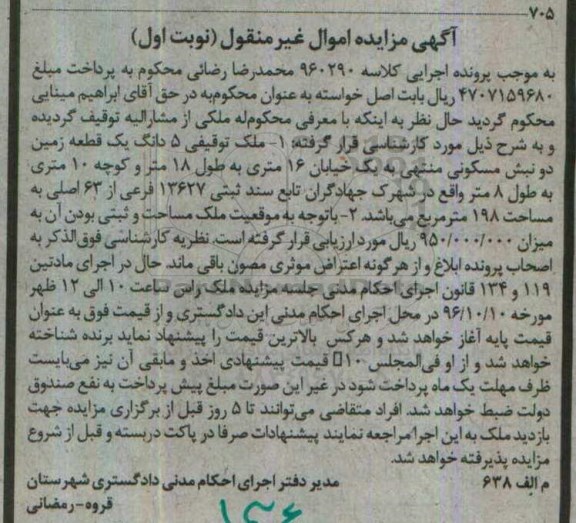 ۷۰۵
آگهی مزایده اموال غیر منقول (نوبت اول)
به موجب پرونده اجرایی کلاسه ۹۶۰۲۹۰ محمدرضا رضائی محکوم به پرداخت مبلغ
۴۷۰۷۱۵۹۶۸۰ ریال بابت اصل خواسته به عنوان محکوم‌به در حق آقای ابراهیم مینایی
محکوم گردید حال نظر به اینکه با معرفی محکوم‌له ملکی از مشارالیه توقیف گردیده
و به شرح ذیل مورد کارشناسی قرار گرفته: ۱- ملک توقیفی ۵ دانگ یک قطعه زمین
دو نبش مسکونی منتهی به یک خیابان ۱۶ متری به طول ۱۸ متر و کوچه ۱۰ متری
به طول ۸ متر واقع در شهرک جهادگران تابع سند ثبتی ۱۳۶۲۷ فرعی از ۶۳ اصلی به
مساحت ۱۹۸ مترمربع می‌باشد. ۲- باتوجه به موقعیت ملک مساحت و ثبتی بودن آن به
میزان ۹۵۰/۰۰۰/۰۰۰ ریال مورد ارزیابی قرار گرفته است. نظریه کارشناسی فوق‌الذکر به
اصحاب پرونده ابلاغ و از هرگونه اعتراض موثری مصون باقی ماند. حال در اجرای مادتین
۱۱۹ و ۱۳۴ قانون اجرای احکام مدنی جلسه مزایده ملک راس ساعت ۱۰ الی ۱۲ ظهر
مورخه ۹۶/۱۰/۱۰ در محل اجرای احکام مدنی این دادگستری و از قیمت فوق به عنوان
قیمت پایه آغاز خواهد شد و هرکس بالاترین قیمت را پیشنهاد نماید برنده شناخته
خواهد شد و از او فی‌المجلس ۱۰ قیمت پیشنهادی اخذ و مابقی آن نیز می‌بایست
ظرف مهلت یک ماه پرداخت شود در غیر این صورت مبلغ پیش پرداخت به نفع صندوق
دولت ضبط خواهد شد. افراد متقاضی می‌توانند تا ۵ روز قبل از برگزاری مزایده جهت
بازدید ملک به این اجرا مراجعه نمایند پیشنهادات صرفا در پاکت دربسته و قبل از شروع
مزایده پذیرفته خواهد شد.
م الف ۶۳۸ مدیر دفتر اجرای احکام مدنی دادگستری شهرستان
قروه- رمضانی